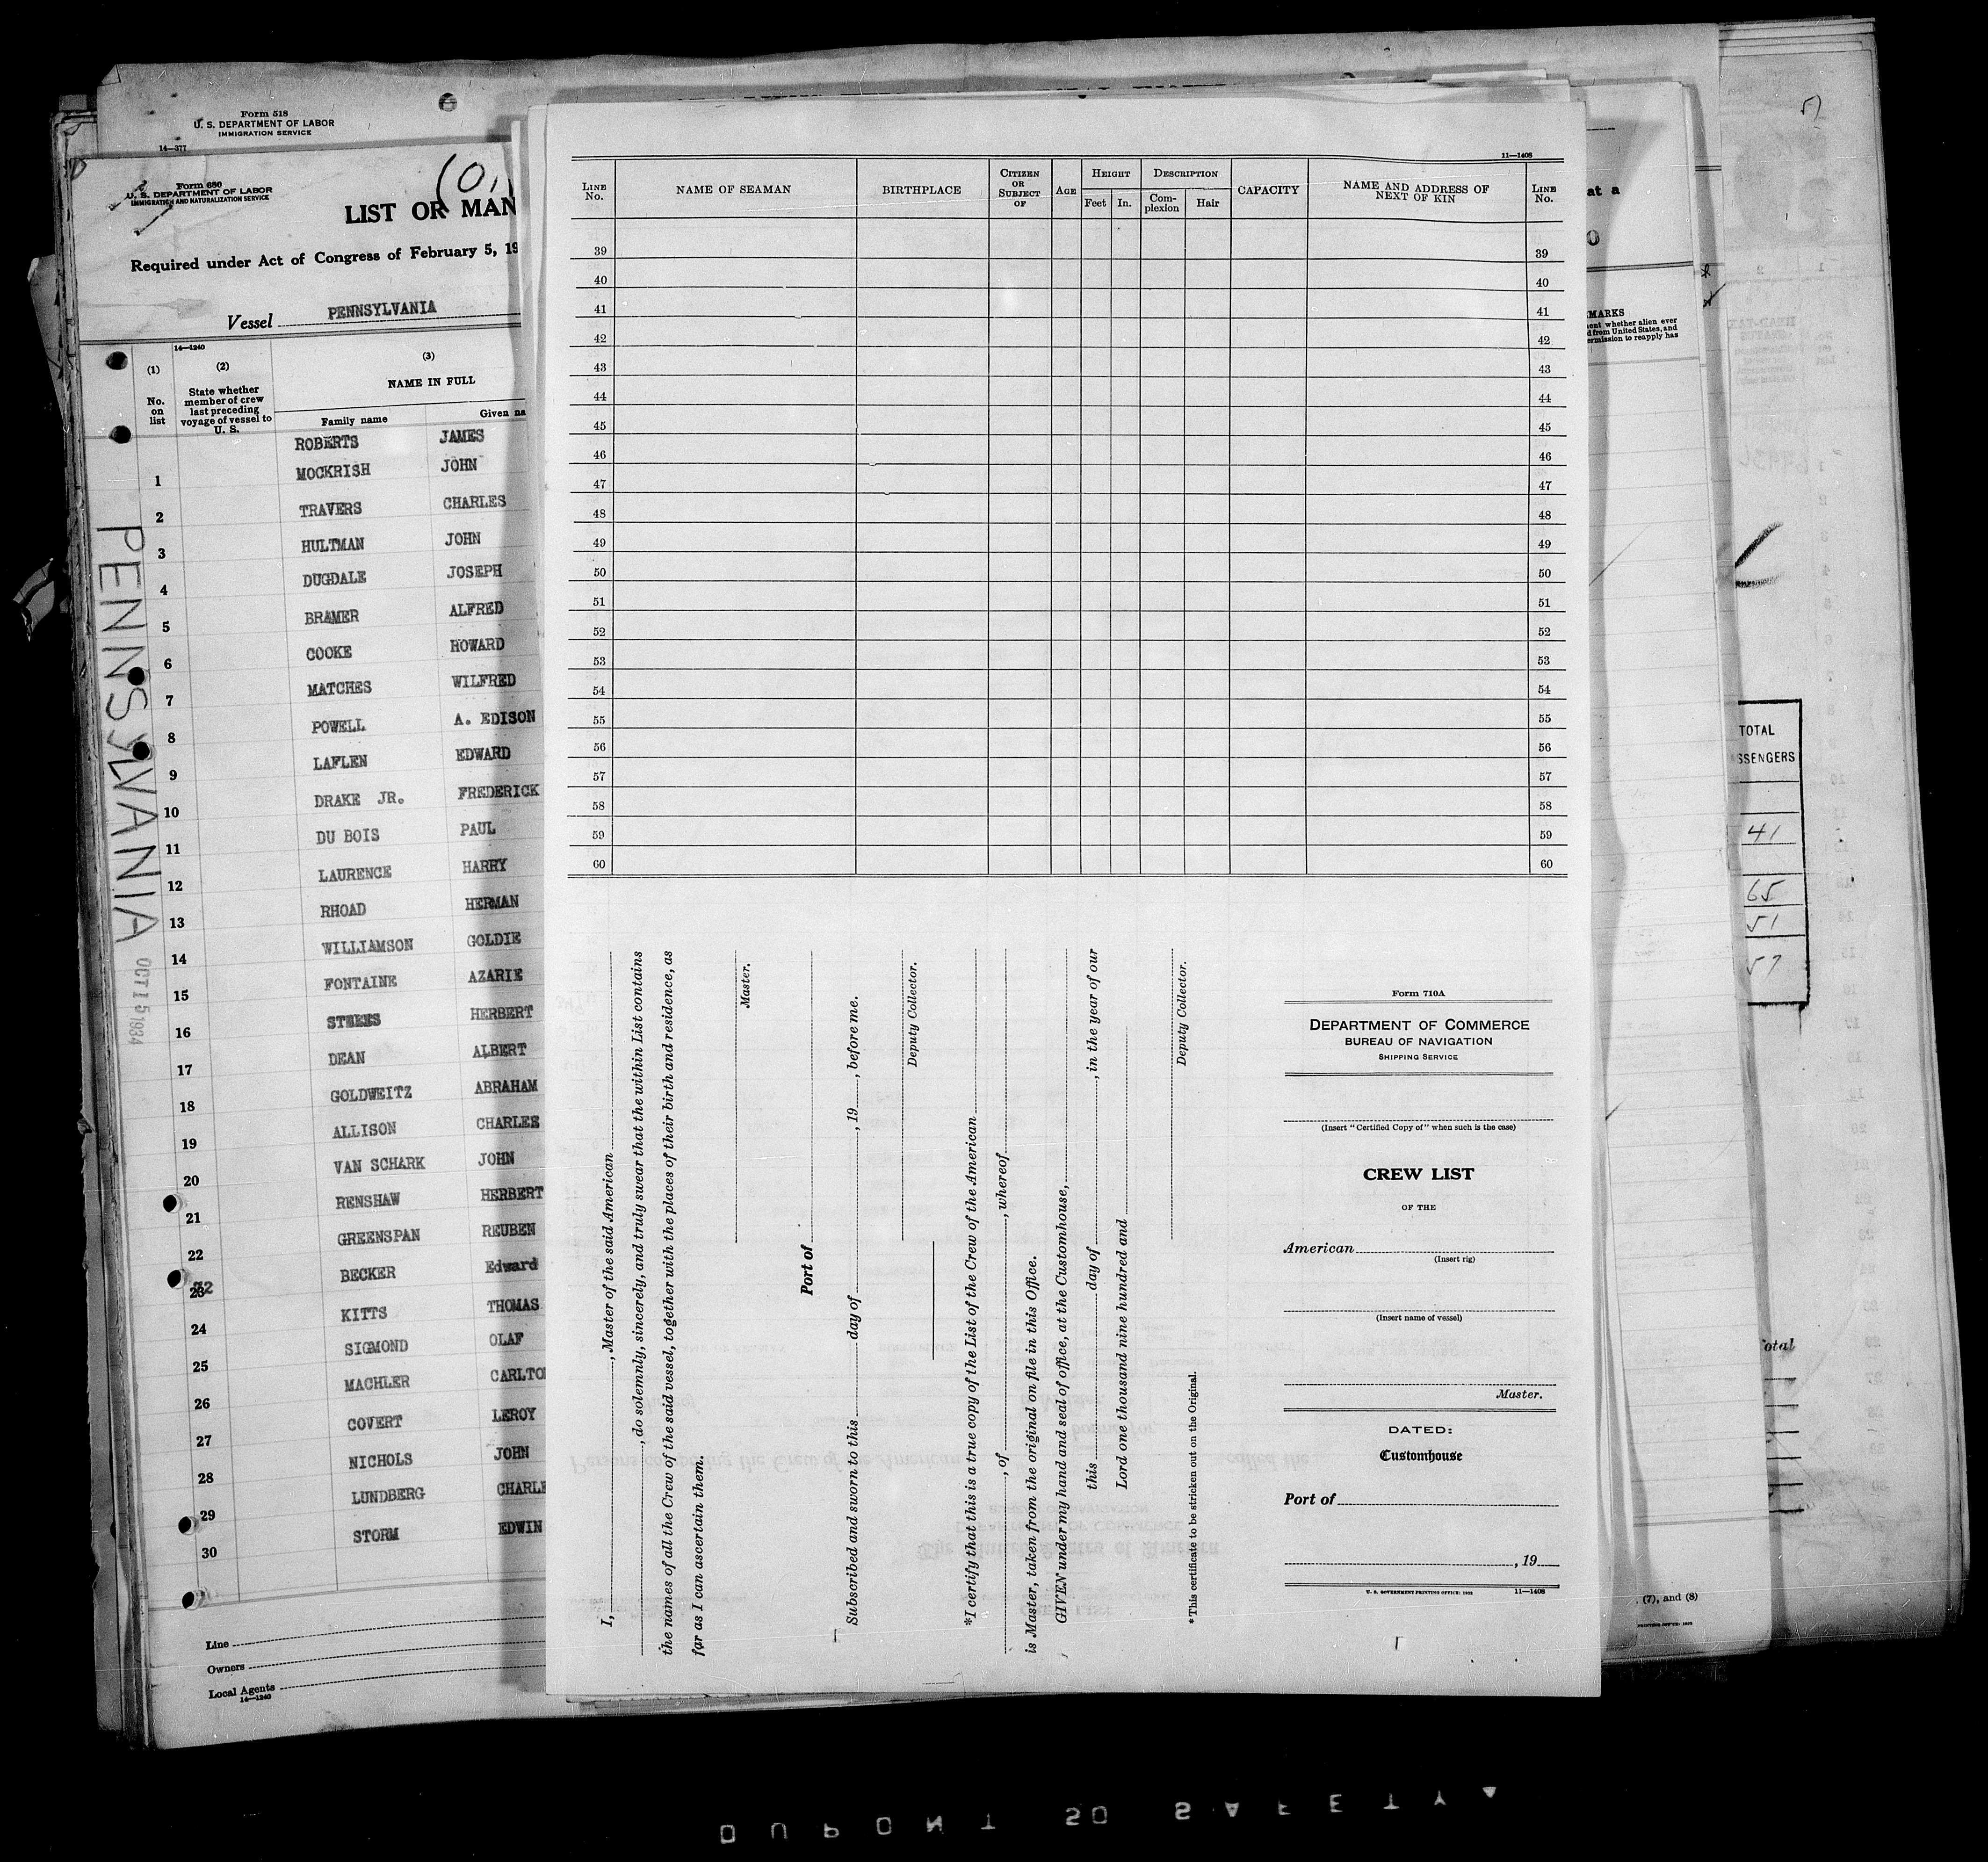 Form 518
U. S. DEPARTMENT OF LABOR
IMMIGRATION SERVICE
14—377
Form 680
U. S. DEPARTMENT OF LABOR
IMMIGRATION AND NATURALIZATION SERVICE
LIST OR MAN
Required under Act of Congress of February 5, 19
Vessel PENNSYLVANIA
14—1240
(1) (2) (3)
No. on list
State whether member of crew last preceding voyage of vessel to U. S.
NAME IN FULL
Family name Given na
ROBERTS JAMES
1 MOCKRISH JOHN
2 TRAVERS CHARLES
3 HULTMAN JOHN
4 DUGDALE JOSEPH
5 BRAMER ALFRED
6 COOKE HOWARD
7 MATCHES WILFRED
8 POWELL A. EDISON
9 LAFLEN EDWARD
10 DRAKE JR. FREDERICK
11 DU BOIS PAUL
12 LAURENCE HARRY
13 RHOAD HERMAN
14 WILLIAMSON GOLDIE
15 FONTAINE AZARIE
16 HERBERT
17 DEAN ALBERT
18 GOLDWEITZ ABRAHAM
19 ALLISON CHARLES
20 VAN SCHARK JOHN
21 RENSHAW HERBERT
22 GREENSPAN REUBEN
23 BECKER Edward
24 KITTS THOMAS
25 SIGMOND OLAF
26 MACHLER CARLTO
27 COVERT LEROY
28 NICHOLS JOHN
29 LUNDBERG CHARLE
30 STORM EDWIN
Line
Owners
Local Agents
14—1240
PENNSYLVANIA
OCT 15 1934
11—1408
LINE No.
NAME OF SEAMAN
BIRTHPLACE
CITIZEN OR SUBJECT OF
AGE
HEIGHT
Feet In.
DESCRIPTION
Complexion Hair
CAPACITY
NAME AND ADDRESS OF NEXT OF KIN
LINE No.
39 39
40 40
41 41
42 42
43 43
44 44
45 45
46 46
47 47
48 48
49 49
50 50
51 51
52 52
53 53
54 54
55 55
56 56
57 57
58 58
59 59
60 60
I, , Master of the said American
, do solemnly, sincerely, and truly swear that the within List contains
the names of all the Crew of the said vessel, together with the places of their birth and residence, as
far as I can ascertain them.
Master.
Port of
Subscribed and sworn to this day of , 19 , before me.
Deputy Collector.
*I certify that this is a true copy of the List of the Crew of the American
, of , whereof
is Master, taken from the original on file in this Office.
GIVEN under my hand and seal of office, at the Customhouse,
this day of , in the year of our
Lord one thousand nine hundred and
Deputy Collector.
*This certificate to be stricken out on the Original.
Form 710A
DEPARTMENT OF COMMERCE
BUREAU OF NAVIGATION
SHIPPING SERVICE
(Insert "Certified Copy of" when such is the case)
CREW LIST
OF THE
American
(Insert rig)
(Insert name of vessel)
Master.
DATED:
Customhouse
Port of
, 19
U. S. GOVERNMENT PRINTING OFFICE: 1932 11—1408
at a
MARKS
ent whether alien ever
d from United States, and
ermission to reapply has
TOTAL
SSENGERS
41
65
51
57
otal
(7), and (8)
DUPONT SO SAFETY